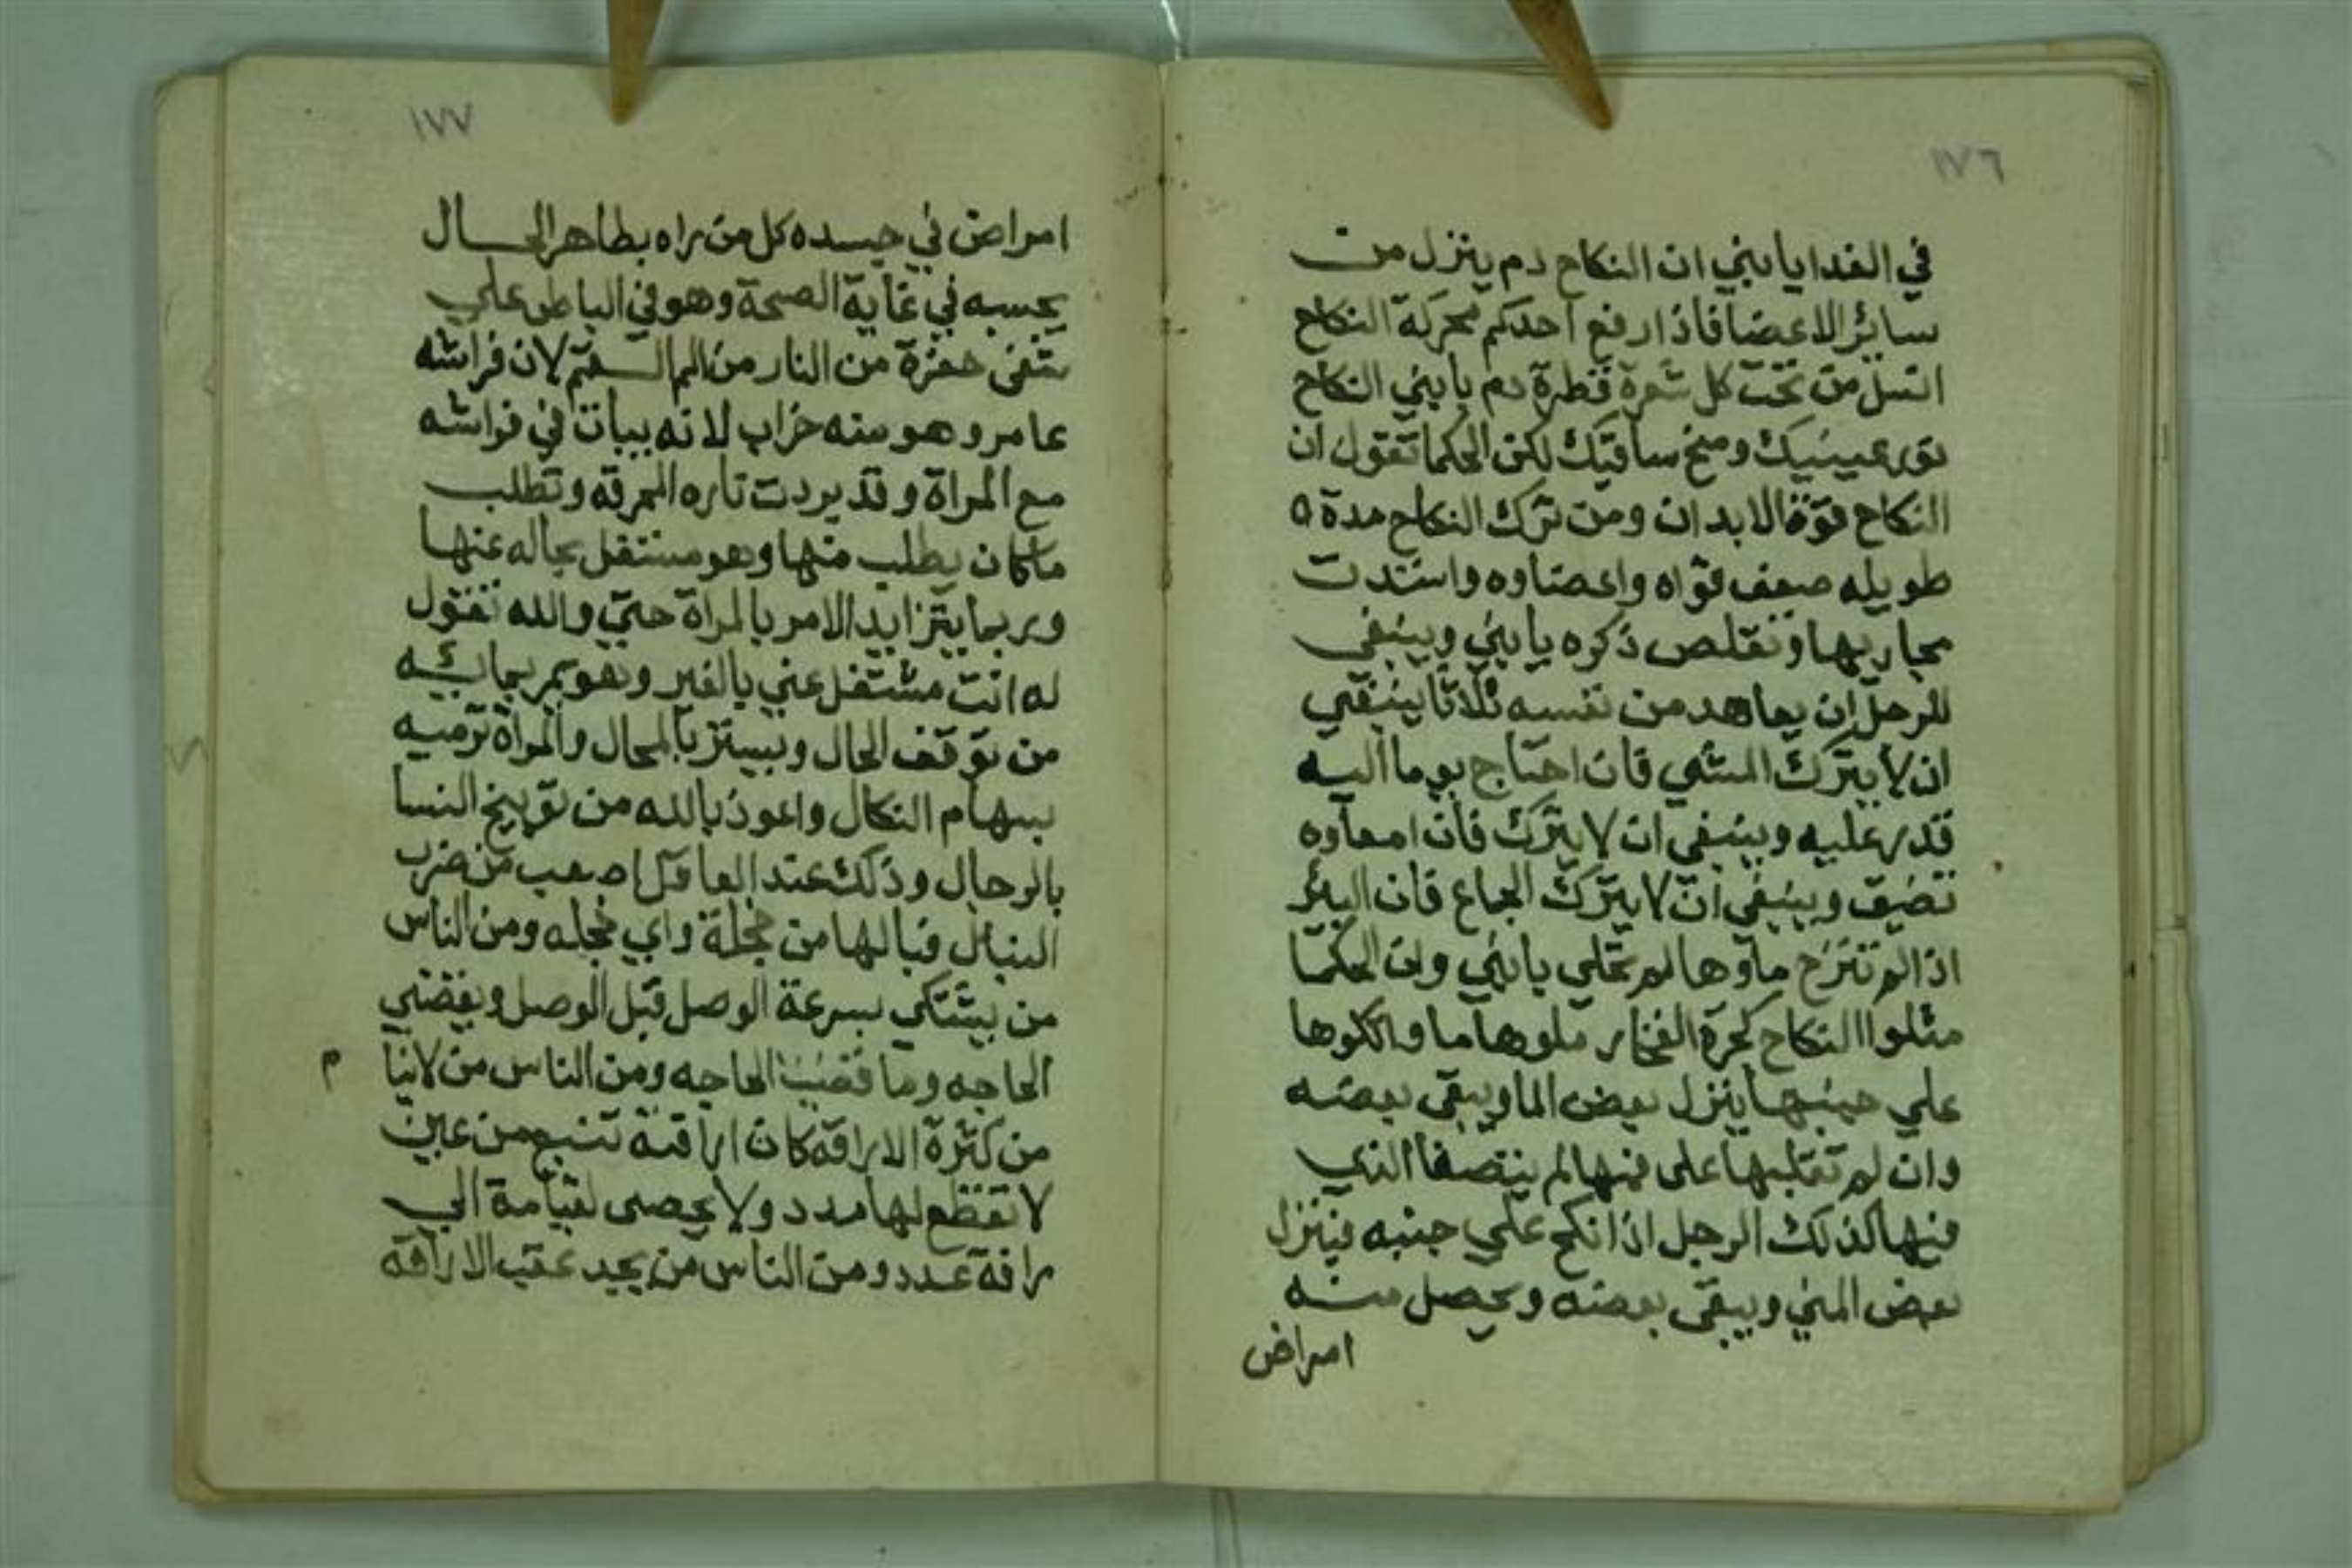 ١٧٦
في الغدا يا بني ان النكاح دم ينزل من
سائر الاعضا فاذا رفع احدكم محركة النكاح
انسل من تحت كل شعرة قطرة دم يا بني النكاح
نور عينيك ومخ ساقيك لكن الحكما تقول ان
النكاح قوة الابدان ومن ترك النكاح مدة ٥
طويله ضعف قواه واعضاوه واستدت
مجاريها وتقلص ذكره يا بني وينبغي
للرجل ان يعاهد من نفسه ثلاثا ينبغي
ان لا يترك المشي فان احتاج يوما اليه
قدر عليه وينبغي ان لا يترك فان امعاوه
تضيق وينبغي ان لا يترك الجماع فان البئر
اذا لم تنزح ماوها لم تحلي يا بني وان الحكما
مثلوا النكاح كجرة الفخار ملوها ما واتكوها
علي جنبها ينزل بعض الما ويبقي بعضه
وان لم تقلبها علي فمها لم ينتصفا الذي
فيها كذلك الرجل اذا نكح علي جنبه فينزل
بعض المني ويبقي بعضه ويحصل منه
امراض
١٧٧
امراض في جسده كل من راه بظاهر الحال
يحسبه في غاية الصحة وهو في الباطن علي
شفي حفرة من النار من الم السقم لان فراشه
عامر وهو منه خراب لانه يبات في فراشه
مع المراة وقد يردت تاره المحرقه وتطلب
ما كان يطلب منها وهو مستقل بحاله عنها
وربما يتزايد الامر بالمراة حتي والله تقول
له انت مشتغل عني بالغير وهو يمر بما بئه
من توقف الحال ويستتر بالمحال والمراة ترميه
بسهام النكال واعوذ بالله من توبيخ النسا
بالرجال وذلك عند العاقل اصعب من ضرب
النبال فيا لها من خجلة واي خجله ومن الناس
من يشتكي بسرعة الوصل قبل الوصل ويقضي
الحاجه وما قضيت الحاجه ومن الناس من لا ينا
م
من كثرة الاراقه كان اراقته تنبع من عين
لا تقطع لها مدد ولا يحصي لقيامة الي
راقة عدد ومن الناس من يجد عقب الاراقة